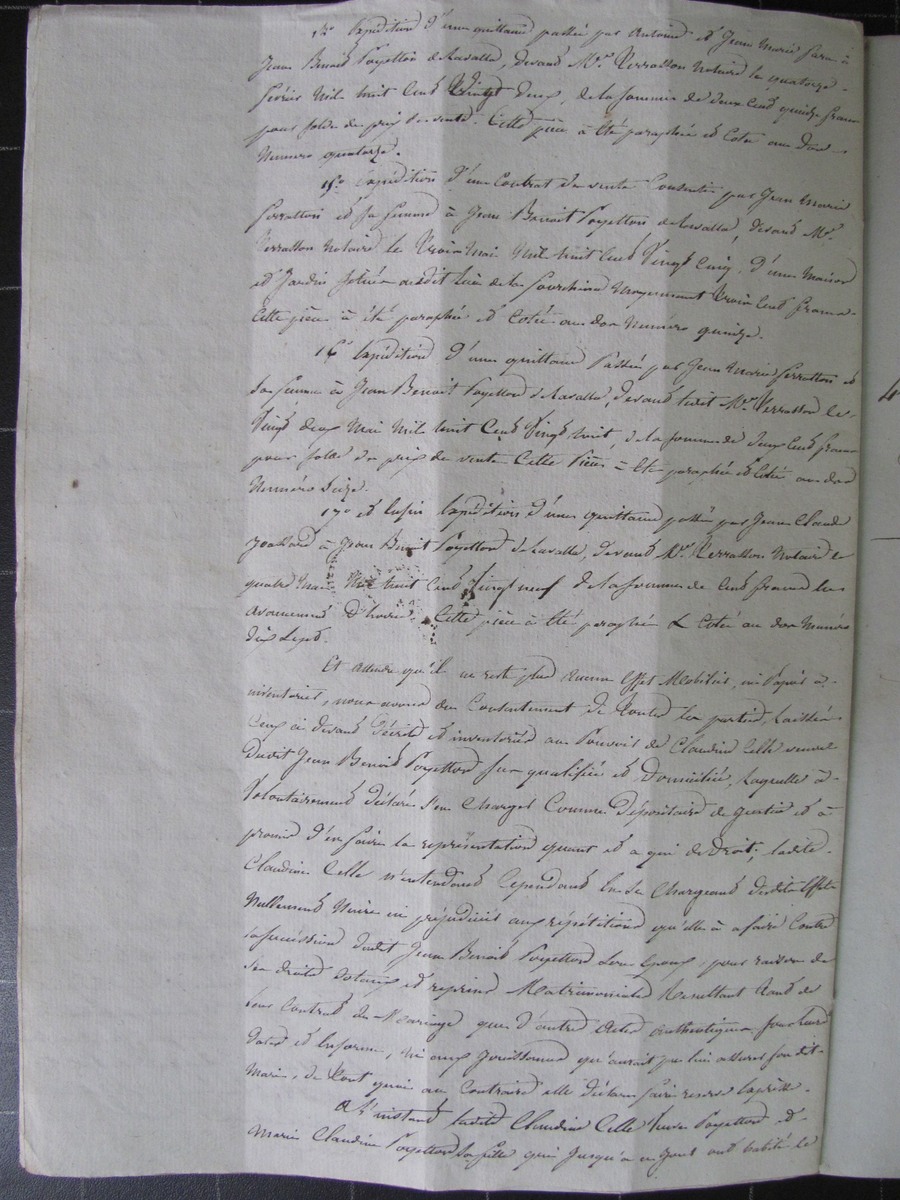 14° Expédition d'une quittance passée par Antoine et Jean Marie à
Jean Benoit Poyetton de Lavalla, devant Me. Terrasson Notaire le quatorze
février mil huit cent vingt deux, de la somme de deux cent quinze francs
pour solde de prix de vente. Cette pièce à été paraphée et cotée au dos
Numéro quatorze.
15° Expédition d'un contrat de vente consenti par Jean Marie
Ferratton et sa femme à Jean Benoit Poyetton de Lavalla, devant Me.
Terrasson Notaire le trois Mai mil huit cent vingt cinq, d'une Maison
et Jardin situés audit lieu de la moyennant trois cent francs.
Cette pièce à été paraphée et cotée au dos Numéro quinze.
16° Expédition d'une quittance passée par Jean Marie Ferratton et
sa femme à Jean Benoit Poyetton de Lavalla, devant ledit Me. Terrasson le
vingt deux Mai mil huit cent vingt huit, de la somme de deux cent francs
pour solde de prix de vente. Cette pièce à été paraphée et cotée au dos
Numéro Seize.
17° et enfin Expédition d'une quittance passée par Jean Claude
à Jean Benoit Poyetton de Lavalla, devant Me. Terrasson Notaire le
quatre Mai mil huit cent vingt neuf de la somme de cent francs en
avancement d'hoirie. Cette pièce à été paraphée & cotée au dos Numéro
dix Sept.
Et attendu qu'il ne reste plus aucun effet Mobilier, ni papiers à
inventorier, nous avons du consentement de toutes les parties, laissés
ceux ci devant décrits et inventoriés au pouvoir de Claudine Celle veuve
dudit Jean Benoit Poyetton sus qualifiée et domiciliée, laquelle à
volontairement déclaré s'en charger comme dépositaire de justice et à
promis d'en faire la représentation quant et à qui de droit; ladite
Claudine Celle n'entendant cependant en se chargeant desdits effets
nullement nuire ni préjudicier aux répétitions qu'elle à a faire contre
la succession dudit Jean Benoit Poyetton son époux, pour raison de
ses droits dotaux et reprises Matrimoniales résultant tant de
son contrat de Mariage que d'autres actes authentiques
datés et informe, ni aux jouissances qu'aurait pu lui assurer son dit
Mari, de tout quoi au contraire elle déclare faire réserve expresse.
A l'instant ladite Claudine Celle veuve Poyetton et
Marie Claudine Poyetton sa fille qui jusqu'à ce jour ont habité le